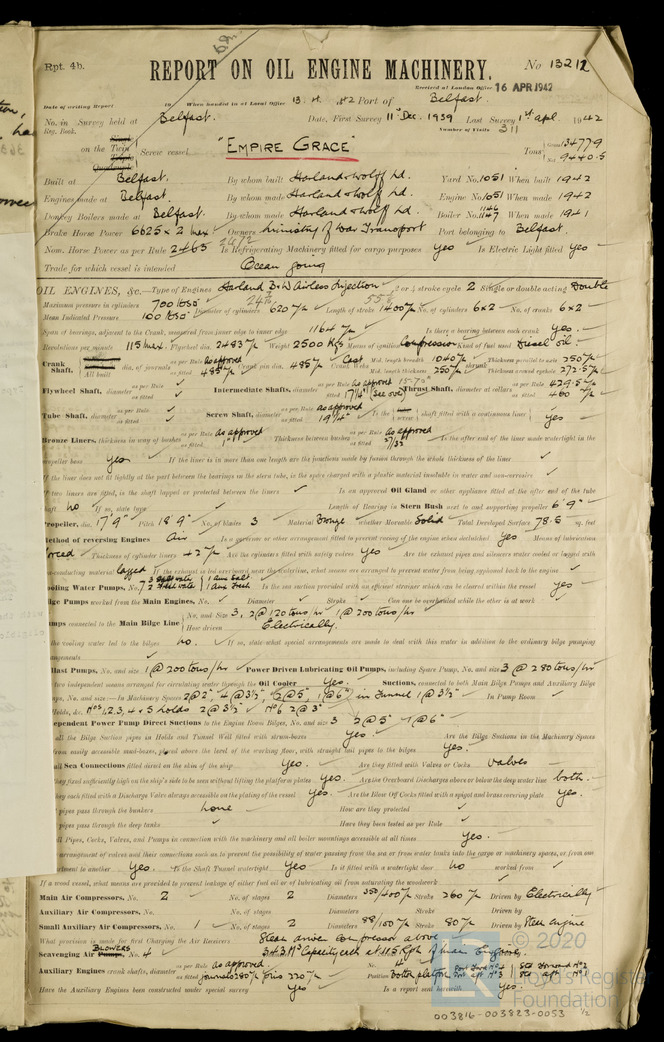 Rpt. 4b.
REPORT ON OIL ENGINE MACHINERY.
No 13212
Received at London Office 16 APR 1942
Date of writing Report 19 When handed in at Local Office 13. 4. 42 Port of Belfast.
No. in Survey held at Belfast. Date, First Survey 11th Dec. 1939 Last Survey 1st April 1942
Reg. Book. Number of Visits 311
on the Twin Screw vessel "EMPIRE GRACE" Tons Gross 13477.9 Net 9440.5
Built at Belfast. By whom built Harland & Wolff Ld. Yard No. 1051 When built 1942
Engines made at Belfast. By whom made Harland & Wolff Ld. Engine No. 1051 When made 1942
Donkey Boilers made at Belfast. By whom made Harland & Wolff Ld. Boiler No. 1147 When made 1941
Brake Horse Power 6625 x 2 Max Owners Ministry of War Transport Port belonging to Belfast.
Nom. Horse Power as per Rule 2465 Is Refrigerating Machinery fitted for cargo purposes Yes Is Electric Light fitted Yes
Trade for which vessel is intended Ocean going
OIL ENGINES, &c. Type of Engines Harland B&W Airless Injection 2 or 4 stroke cycle 2 Single or double acting Double
Maximum pressure in cylinders 700 lbs Diameter of cylinders 620 Length of stroke 1400 No. of cylinders 6x2 No. of cranks 6x2
Mean Indicated Pressure 100 lbs
Span of bearings, adjacent to the Crank, measured from inner edge to inner edge 1164 Is there a bearing between each crank Yes.
Revolutions per minute 115 Max. Flywheel dia. 2483 Weight 2500 Kgs Means of ignition Compression Kind of fuel used Diesel oil.
Crank Shaft, dia. of journals as per Rule as approved as fitted 485 Crank pin dia. 485 Crank Webs Mid. length breadth 1040 Thickness parallel to axis 250
All built Mid. length thickness 250 shrunk Thickness around eyehole 272.5
Flywheel Shaft, diameter as per Rule as fitted Intermediate Shafts, diameter as per Rule as approved as fitted 17 1/4" (see over) Thrust Shaft, diameter at collars as per Rule 429.5 as fitted 460
Tube Shaft, diameter as per Rule as fitted Screw Shaft, diameter as per Rule as approved as fitted 19 1/4" Is the shaft fitted with a continuous liner Yes
Bronze Liners, thickness in way of bushes as per Rule as approved as fitted 1" Thickness between bushes as per Rule as approved as fitted 27/32" Is the after end of the liner made watertight in the
propeller boss Yes If the liner is in more than one length are the junctions made by fusion through the whole thickness of the liner
If the liner does not fit tightly at the part between the bearings in the stern tube, is the space charged with a plastic material insoluble in water and non-corrosive
If two liners are fitted, is the shaft lapped or protected between the liners Is an approved Oil Gland or other appliance fitted at the after end of the tube
shaft no If so, state type Length of Bearing in Stern Bush next to and supporting propeller 6' 9"
Propeller, dia. 17' 9" Pitch 18' 9" No. of blades 3 Material Bronze whether Moveable Solid Total Developed Surface 78.5 sq. feet
Method of reversing Engines Air Is a governor or other arrangement fitted to prevent racing of the engine when declutched Yes Means of lubrication
forced Thickness of cylinder liners 42 Are the cylinders fitted with safety valves Yes Are the exhaust pipes and silencers water cooled or lagged with
non-conducting material lagged If the exhaust is led overboard near the waterline, what means are arranged to prevent water being syphoned back to the engine
Cooling Water Pumps, No. 7 Is the sea suction provided with an efficient strainer which can be cleared within the vessel Yes
Bilge Pumps worked from the Main Engines, No. Diameter Stroke Can one be overhauled while the other is at work
Pumps connected to the Main Bilge Line No. and Size 3, 2 @ 120 tons/hr 1 @ 200 tons/hr
How driven Electrically.
Is the cooling water led to the bilges no. If so, state what special arrangements are made to deal with this water in addition to the ordinary bilge pumping
arrangements
Ballast Pumps, No. and size 1 @ 200 tons/hr Power Driven Lubricating Oil Pumps, including Spare Pump, No. and size 3 @ 280 tons/hr
Are two independent means arranged for circulating water through the Oil Cooler Yes. Suctions, connected to both Main Bilge Pumps and Auxiliary Bilge
Pumps, No. and size:—In Machinery Spaces 2@2" 4@3 1/2" 2@5" 1@6" in Tunnel 1@3 1/2" In Pump Room
In Holds, &c. Nos 1, 2, 3, 4 & 5 holds 2@3 1/2" No 6. 2@3"
Independent Power Pump Direct Suctions to the Engine Room Bilges, No. and size 3 2@5" 1@6"
Are all the Bilge Suction pipes in Holds and Tunnel Well fitted with strum-boxes Yes. Are the Bilge Suctions in the Machinery Spaces
from easily accessible mud-boxes, placed above the level of the working floor, with straight tail pipes to the bilges Yes.
Are all Sea Connections fitted direct on the skin of the ship Yes. Are they fitted with Valves or Cocks valves
Are they fixed sufficiently high on the ship's side to be seen without lifting the platform plates Yes. Are the Overboard Discharges above or below the deep water line both.
Are they each fitted with a Discharge Valve always accessible on the plating of the vessel Yes. Are the Blow Off Cocks fitted with a spigot and brass covering plate Yes.
pipes pass through the bunkers none How are they protected
pipes pass through the deep tanks Have they been tested as per Rule
all Pipes, Cocks, Valves, and Pumps in connection with the machinery and all boiler mountings accessible at all times Yes.
arrangement of valves and their connections such as to prevent the possibility of water passing from the sea or from water tanks into the cargo or machinery spaces, or from one
compartment to another Yes. Is the Shaft Tunnel watertight Yes Is it fitted with a watertight door no worked from
If a wood vessel, what means are provided to prevent leakage of either fuel oil or of lubricating oil from saturating the woodwork
Main Air Compressors, No. 2 No. of stages 2 Diameters 350/400 Stroke 260 Driven by Electrically
Auxiliary Air Compressors, No. No. of stages Diameters Stroke Driven by
Small Auxiliary Air Compressors, No. 1 No. of stages 2 Diameters 88/100 Stroke 80 Driven by Steam engine
What provision is made for first Charging the Air Receivers Steam driven Compressor above
Scavenging Air BLOWERS No. 4 343 M³ Capacity each at 115 Rpm of main Engines.
Auxiliary Engines crank shafts, diameter as per Rule as approved as fitted journals 280 Pins 220 Position bottom platform
Have the Auxiliary Engines been constructed under special survey Yes Is a report sent herewith Yes.
© 2020
Lloyd's Register
Foundation
003816-003823-0053 1/2